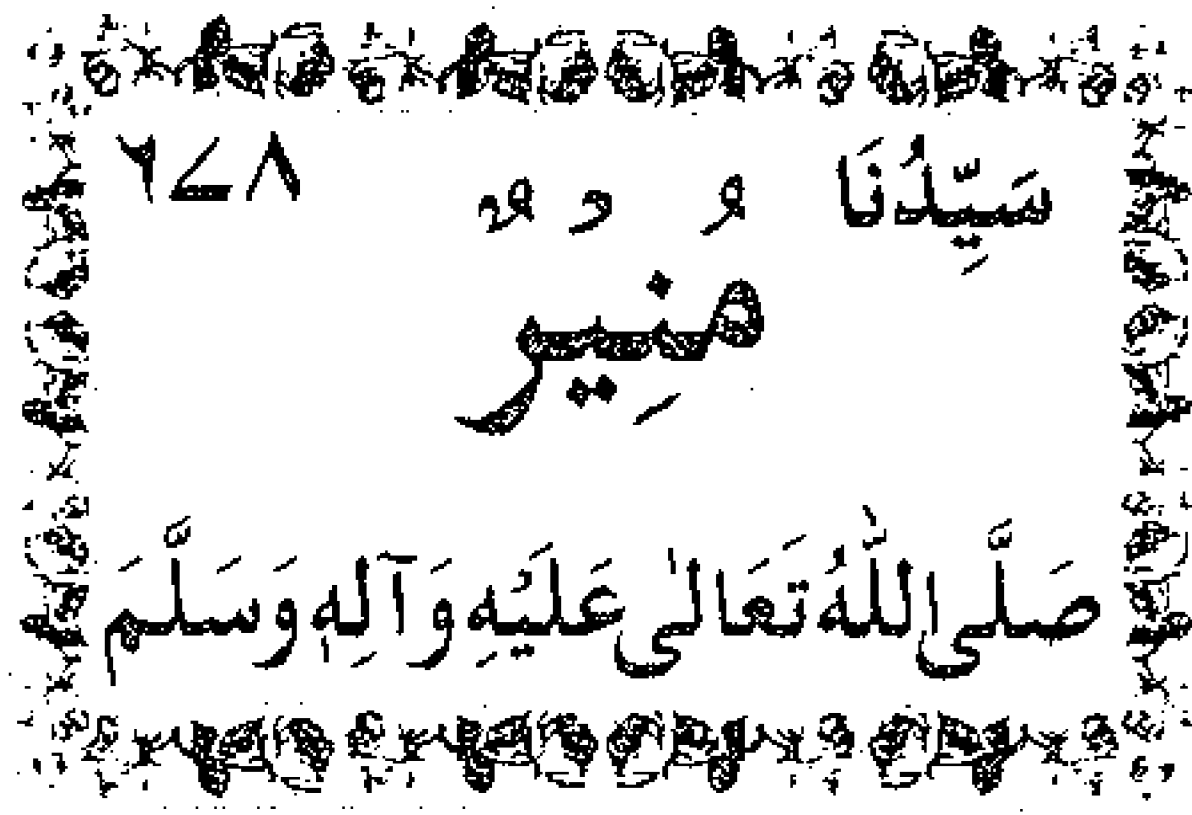 سَيِّدُنَا ۶۷۸
مُنِيْرٌ
صَلَّى اللّٰهُ تَعَالٰى عَلَيْهِ وَآلِهٖ وَسَلَّمَ